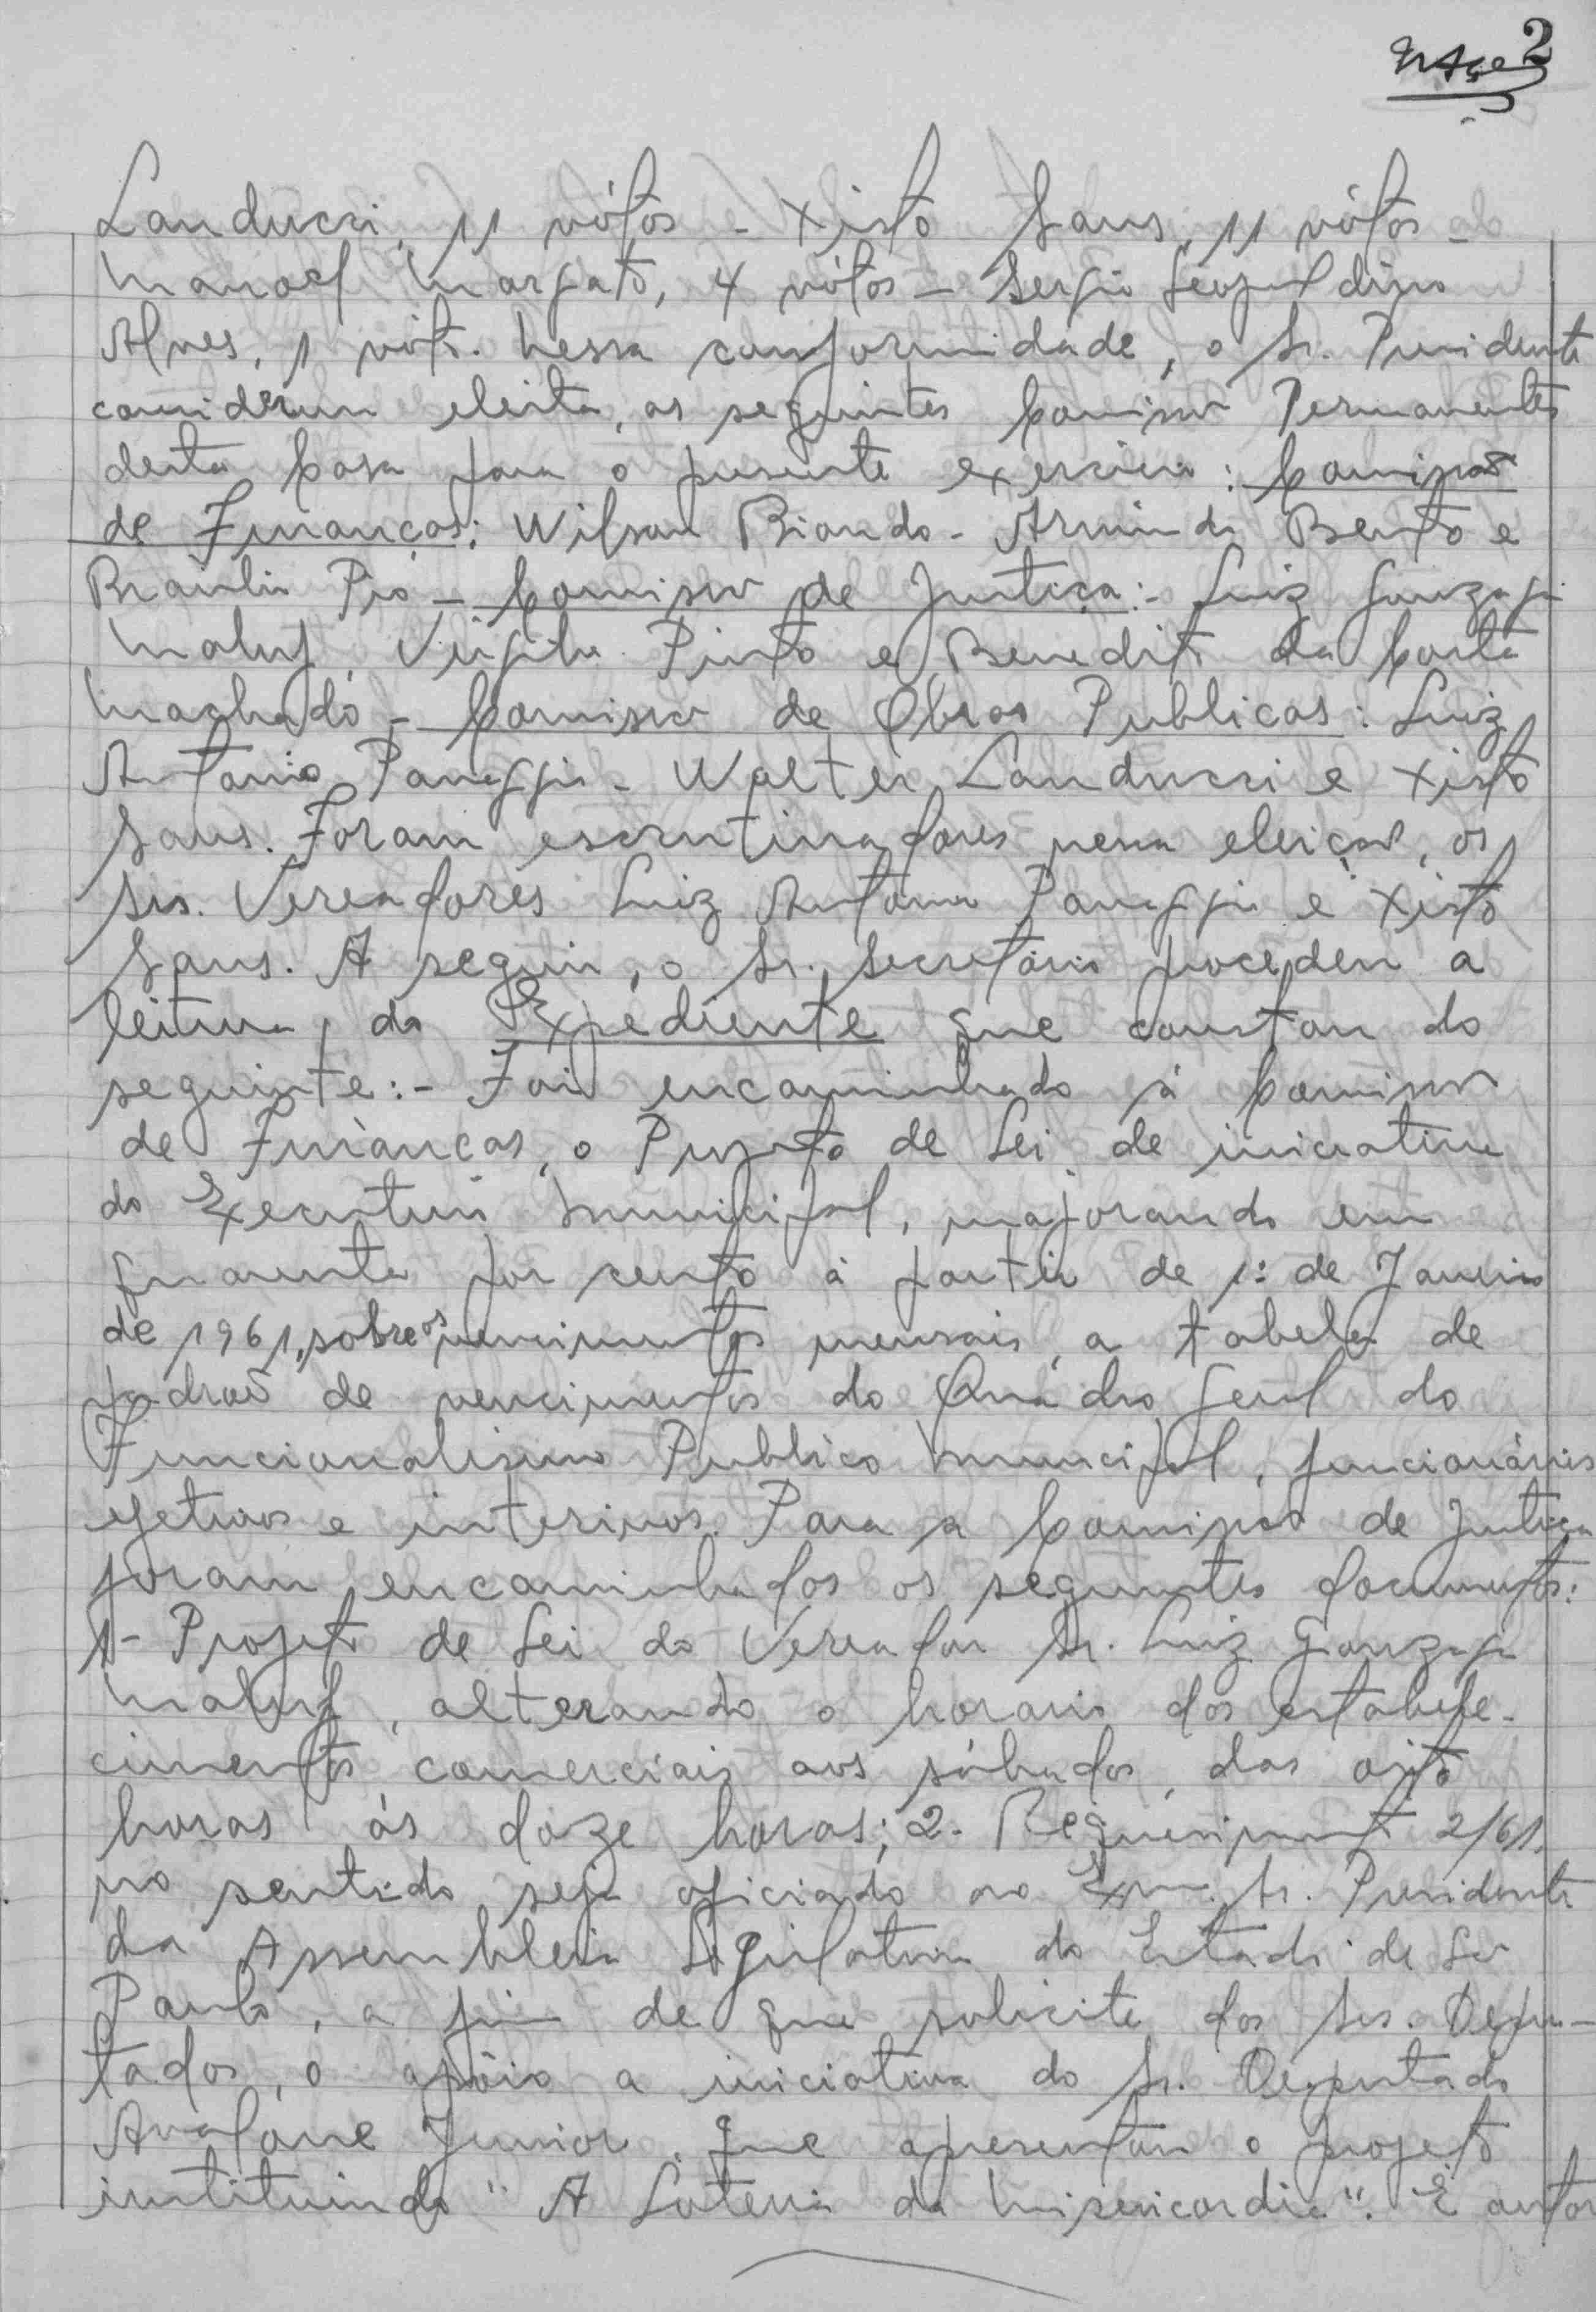 2
Landucci, 11 vótos - Xisto Sans, 11 vótos -
Manoel Margato, 4 vótos - Sergio Leopoldino
Alves, 1 vóto. Nessa conformidade, o Sr. Presidente
considerou eleita, as seguintes Comissão Permanentes
desta Casa para o presente exercicio: Comissão
de Finanças: Wilson Biondo - Armindo Bento e
Braulio Pio - Comissão de Justiça:- Luiz Gonzaga
Maluf, Virgilio Pinto e Benedito da Costa
Machado - Comissão de Obras Publicas: Luiz
Antonio Paneggio - Walter Landucci e Xisto
Sans. Foram escrutinadores nessa eleição, os
srs. Vereadores Luiz Antonio Paneggio e Xisto
Sans. A seguir, o Sr. Secretário procedeu a
leitura do Expediente que constou do
seguinte:- Foi encaminhado á Comissão
de Finanças, o Projeto de Lei de iniciativa
do Executivo Municipal, majorando em
quarenta por cento á partir de 1º de Janeiro
de 1961, sobre os vencimentos mensais, a tabela de
padrão de vencimentos do Quadro Geral do
Funcionalismo Publico Municipal, funcionários
efetivos e interinos. Para a Comissão de Justiça
foram encaminhados os seguintes documentos:
1- Projeto de Lei do Vereador Sr. Luiz Gonzaga
Maluf, alterando o horario dos estabele-
cimentos comerciais aos sábados, das oito
horas ás doze horas; 2- Requerimento 2/61,
no sentido seja oficiado ao Exmo. Sr. Presidente
da Assembleia Legislativa do Estado de São
Paulo, a fim de que solicite dos Srs. Depu-
tados, o apôio a iniciativa do Sr. Deputado
Avalone Junior, que apresentou o projeto
instituindo "A Loteria da Misericordia". É autor